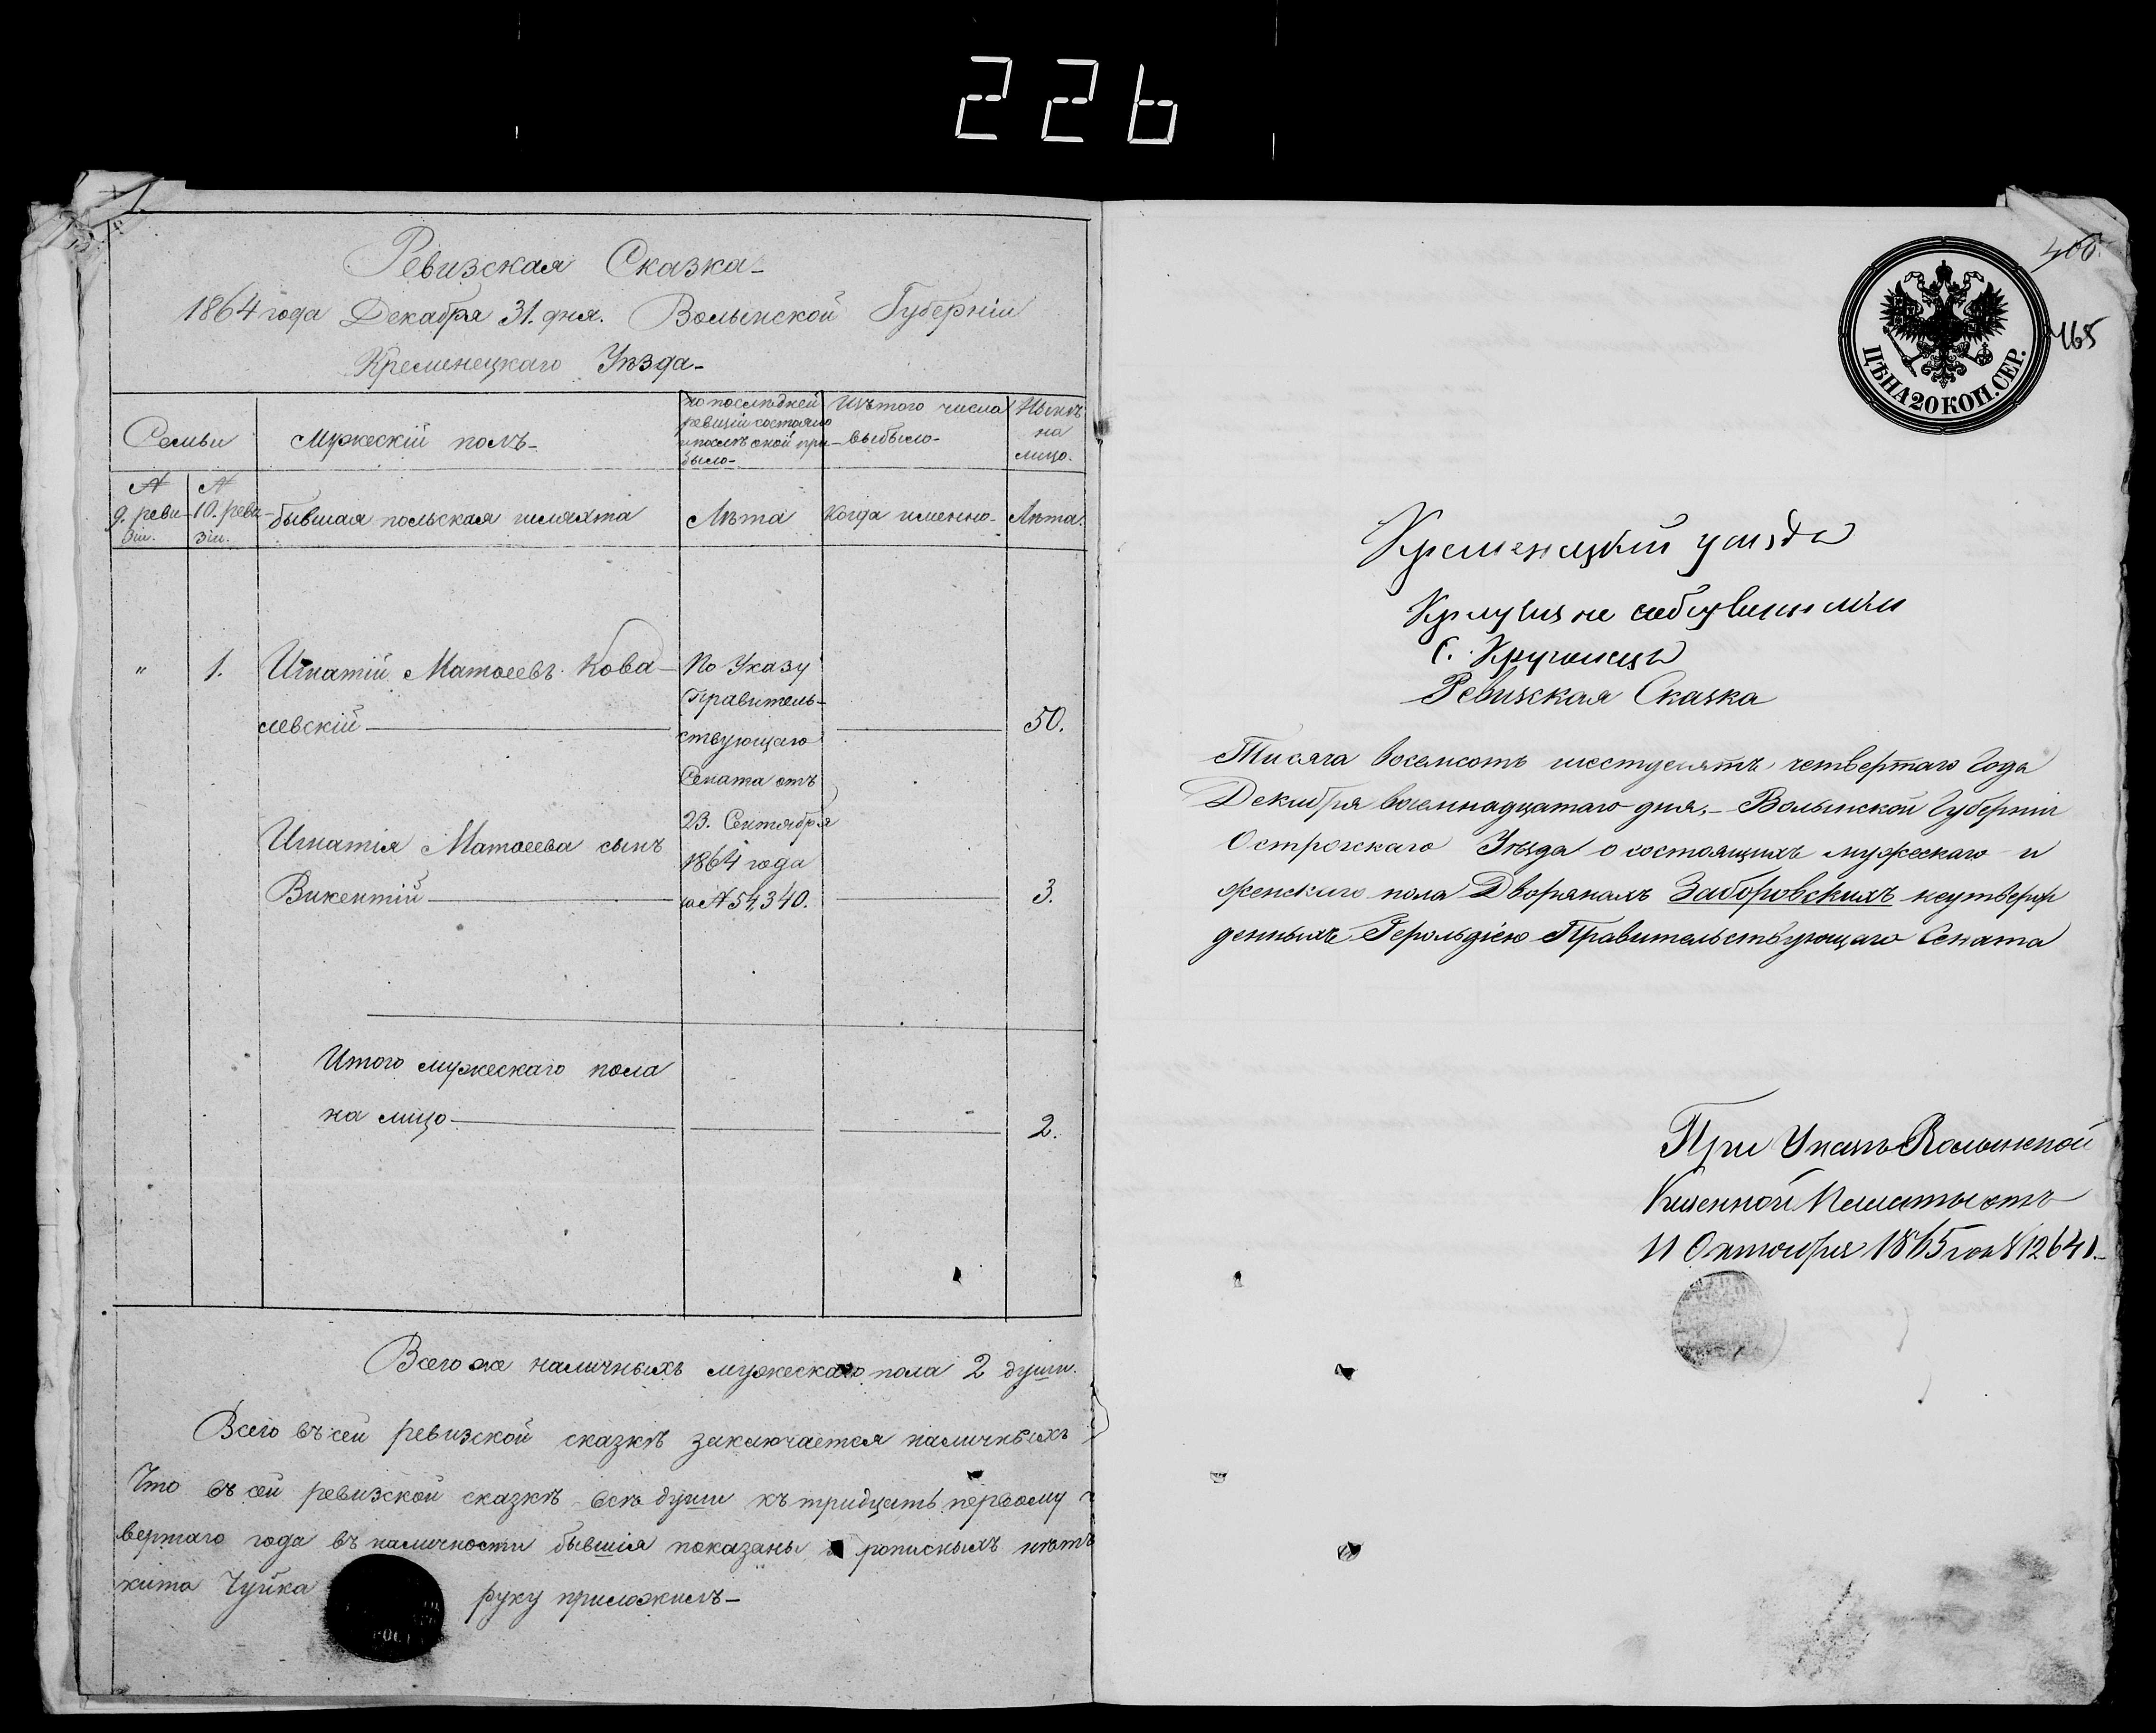 226
Ревизская Сказка-
1864 года Декабря 31. дня. Волынской Губерніи
Кременецкаго Уѣзда-
Семьи
Мужескій полъ-
по послѣдней ревизіи состояло и послѣ оной при-было-
Изъ того числа выбыло-
Нынѣ на лицо.
№ 9. реви-зіи.
№ 10. реви-зіи.
бывшая польская шляхта
Лѣта
Когда именно-
Лѣта.
" 1. Игнатій Матвеевъ Кова-
левскій 50.
По Указу
Правитель-
ствующаго
Сената отъ
23. Сентября
1864 года
за № 54,340.
Игнатія Матвеева сынъ
Викентій 3.
Итого мужескаго пола
на лицо 2.
Всего же наличныхъ мужескаго пола 2 души.
Всего въ сей ревизской сказкѣ заключается наличныхъ
Что въ сей ревизской сказкѣ всѣ души къ тридцать первому
вертаго года въ наличности бывшія показаны и прописныхъ нѣтъ
кита Чуйка руку приложилъ-
400.
465
ЦѢНА 20 КОП. СЕР.
Кременецкій уѣзда
С.
Ревизская Сказка
Тисяча восемсотъ шестдесятъ четвертаго Года
Декабря восемнадцатаго дня,- Волынской Губерніи
Острожскаго Уѣзда о состоящихъ мужескаго и
женскаго пола Дворянахъ Заборовскихъ неутверж
денныхъ Герольдіею Правительствующаго Сената
При Указѣ Волынской
Казенной Палаты отъ
11 Октября 1865 года № 12641.